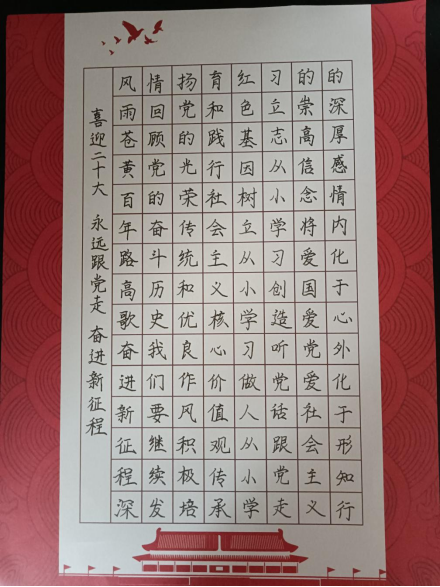 喜迎二十大 永远跟党走 奋进新征程
风雨苍黄百年路高歌奋进新征程深
情回顾党的奋斗历史我们要继续发
扬党的光荣传统和优良作风积极培
育和践行社会主义核心价值观传承
红色基因树立从小学习做人从小学
习立志从小学习创造听党话跟党走
的崇高信念将爱国爱党爱社会主义
的深厚感情内化于心外化于形知行